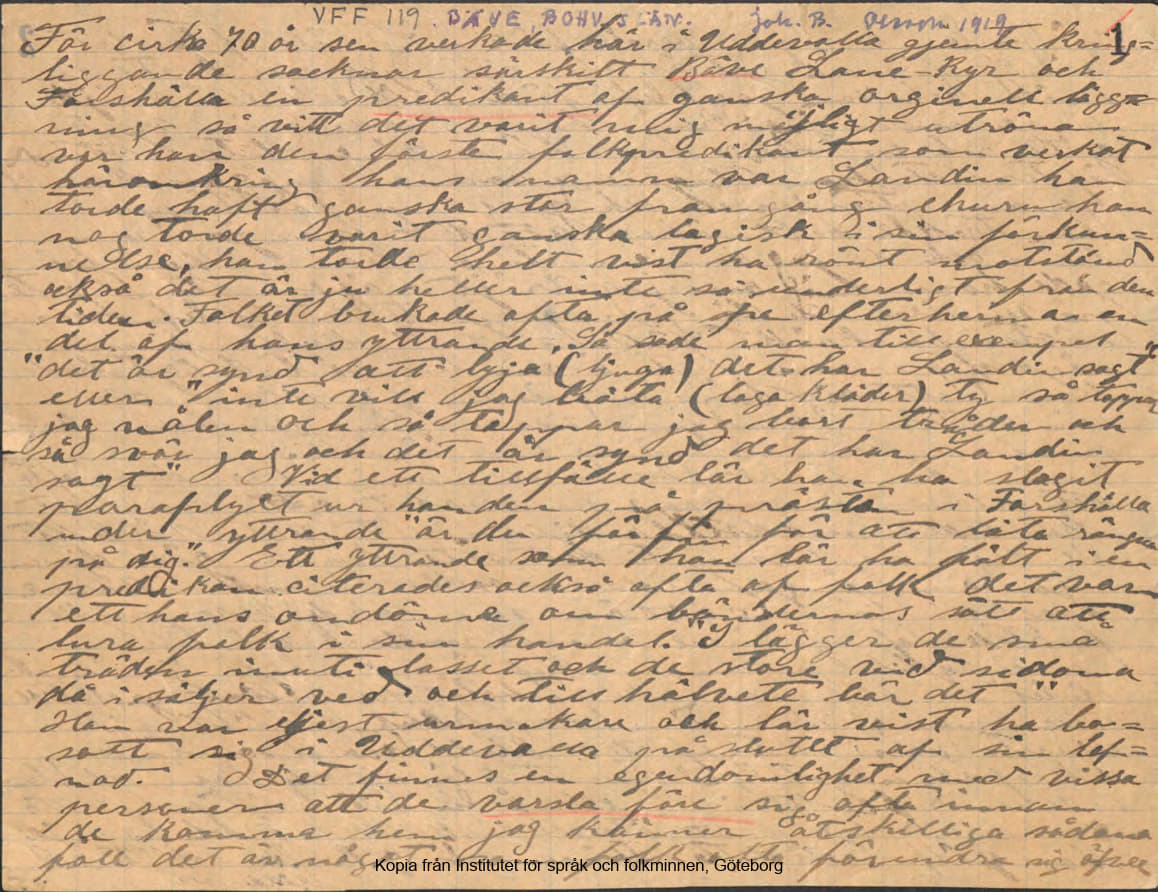 VFF 119. BÄVE, BOHUSLÄN. Joh. B. Persson 1919
1
För cirka 70 år sen verkade här i Uddevalla gjemte kring=
liggande socknar särskilt Bäve Lane-Ryr och
Forshälla en predikant af ganska orginell lägg=
ning så vitt det varit mig möjligt utröna
var han den förste folkpredikant som verkat
häromkring hans namn var Landin han
torde haft ganska stor framgång ehuru han
nog torde varit ganska lagisk i sin förkun=
nelse, han torde helt vist ha rönt motstånd
också det är ju heller inte så underligt från den
tiden. Folket brukade ofta på efterherma en
del af hans yttrande. Så sade man till exempel
"det är synd att lyja (ljuga) det har Landin sagt"
eller "inte vill jag bäta (laga kläder) ty så tappar
jag nålen och så tappar jag bort tråden och
så svär jag och det är synd det har Landin
sagt" Vid ett tillfälle lär han ha slagit
paraplyet ur handen på prästen i Forshälla
under yttrande "är du för att låta rängna
på dig." Ett yttrande som han lär ha fält i en
predikan citerades också ofta af folk det var
ett hans omdöme om böndernas sätt att
lura folk i sin handel. "I lägger de små
träden inuti lasset och de store vid sidorna
då i säljer ved och till hälvete bär det"
Han var eljest urmakare och lär vist ha bo=
satt sig i Uddevalla på slutet af sin lef=
nad. Det finnes en egendomlighet med vissa
personer att de varsla före sig ofta innan
de komma hem jag känner åtskilliga sådana
fall det är något förundra sig öfver
Kopia från Institutet för språk och folkminnen, Göteborg